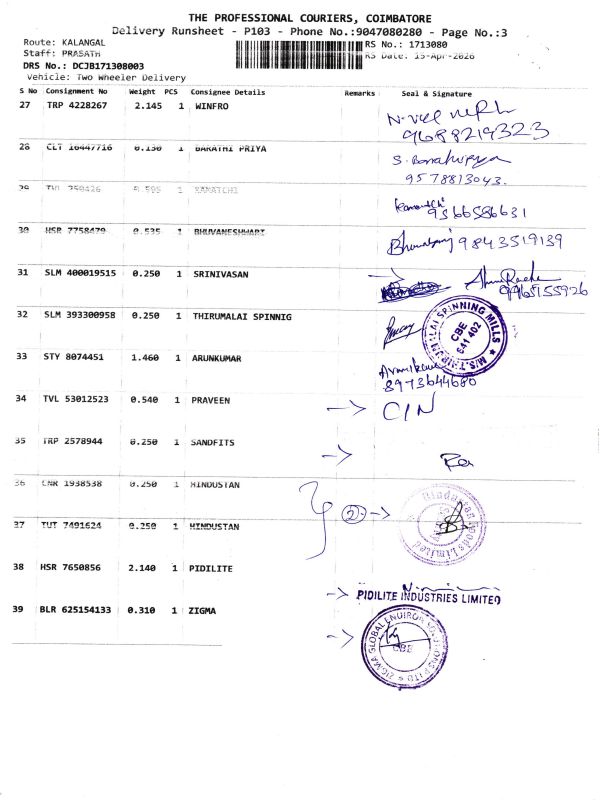 THE PROFESSIONAL COURIERS, COIMBATORE
Delivery Runsheet - P103 - Phone No.:9047080280 - Page No.:3
Route: KALANGAL
RS No.: 1713080
Staff: PRASATH
RS Date: 15-Apr-2026
DRS No.: DCJB171308003
Vehicle: Two Wheeler Delivery
S No Consignment No Weight PCS Consignee Details Remarks Seal & Signature
27 TRP 4228267 2.145 1 WINFRO
9688219323
28 CLT 16447716 0.130 1 BARATHI PRIYA
9578813043.
29 TVL 1 KAMATCHI
9566586631
30 HSR 7758479 0.535 1 BHUVANESHWARI
9843519139
31 SLM 400019515 0.250 1 SRINIVASAN
9965155926
32 SLM 393300958 0.250 1 THIRUMALAI SPINNIG
M/S. THIRUMALAI SPINNING MILLS
CBE
641 402
33 STY 8074451 1.460 1 ARUNKUMAR
8973644680
34 TVL 53012523 0.540 1 PRAVEEN
C/N
35 TRP 2578944 0.250 1 SANDFITS
36 CNR 1938538 0.250 1 HINDUSTAN
2
Hindustan
Limited
37 TUT 7491624 0.250 1 HINDUSTAN
38 HSR 7650856 2.140 1 PIDILITE
PIDILITE INDUSTRIES LIMITED
39 BLR 625154133 0.310 1 ZIGMA
ZIGMA GLOBAL ENVIRON SOLUTIONS P LTD
CBE